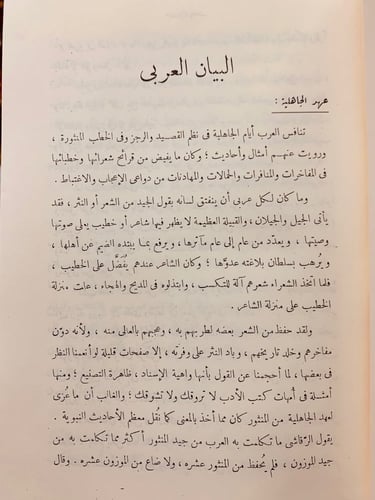 البيان العربى
عهد الجاهلية :
تنافس العرب أيام الجاهلية فى نظم القصيد والرجز وفى الخطب المنثورة ،
ورويت عنهم أمثال وأحاديث ؛ وكان ما يفيض من قرائح شعرائها وخطبائها
فى المفاخرات والمنافرات والحمالات والمهادنات من دواعى الإعجاب والاغتباط .
وما كان لكل عربى أن ينفتق لسانه بقول الجيد من الشعر أو النثر ، فقد
يأتى الجيل والجيلان ، والقبيلة العظيمة لا يظهر فيها شاعر أو خطيب يعلى صوتها
وصيتها ، ويعدّد من عام إلى عام مآثرها ، ويرفع بما يبتده الضيم عن أهلها ،
ويُرهب بسلطان بلاغته عدوّها ؛ وكان الشاعر عندهم يُفَضَّل على الخطيب ،
فلما اتخذ الشعراء شعرهم آلة للتكسب ، وابتذلوه فى المديح والهجاء ، علت منزلة
الخطيب على منزلة الشاعر .
ولقد حفظ من الشعر بعضه لطربهم به ، وعجبهم بالمعانى منه ، ولأنه دوّن
مفاخرهم وخلد تاريخهم ، وباد النثر على وفرته ، إلا صفحات قليلة لو أنعمنا النظر
فى بعضها ، لما أحجمنا عن القول بأنها واهية الإسناد ، ظاهرة التصنيع ؛ ومنها
أمثلة فى أمهات كتب الأدب لا تروقك ولا تشوقك ؛ والغالب أن ما عُزى
لعهد الجاهلية من المنثور كان مما أخذ بالمعنى كما نُقل معظم الأحاديث النبوية .
يقول الرَّقاشى ما تكلمت به العرب من جيد المنثور أكثر مما تكلمت به من
جيد الموزون ، فلم يُحفظ من المنثور عشره ، ولا ضاع من الموزون عشره . وقال